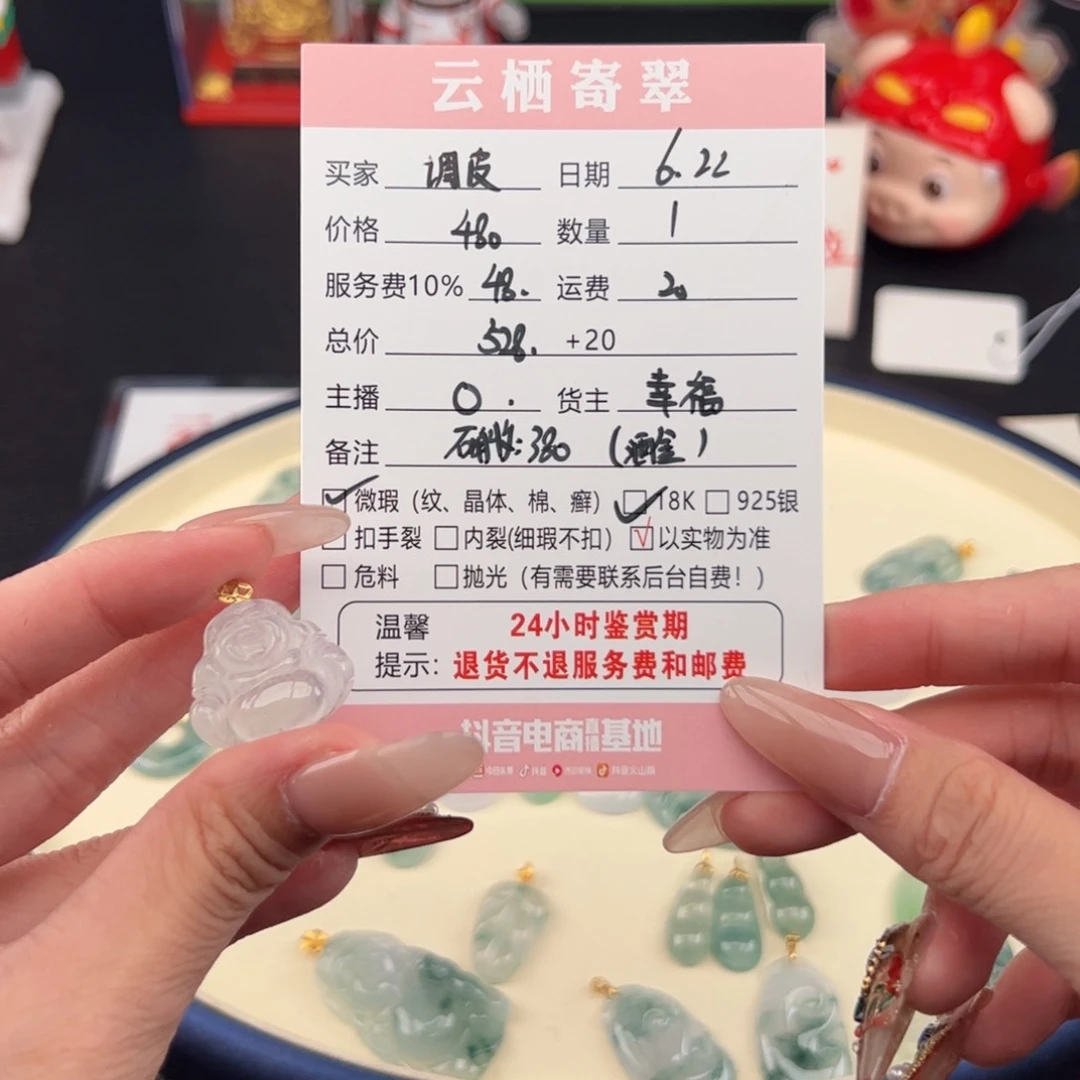 云栖寄翠
买家 调皮 日期 6.22
价格 480 数量 1
服务费10% 48. 运费 20
总价 528. +20
主播 O. 货主 幸福
备注 380
微瑕（纹、晶体、棉、癣） 18K 925银
扣手裂 内裂(细瑕不扣） 以实物为准
危料 抛光（有需要联系后台自费！）
温馨 24小时鉴赏期
提示: 退货不退服务费和邮费
抖音电商直播基地
抖音 抖音火山版